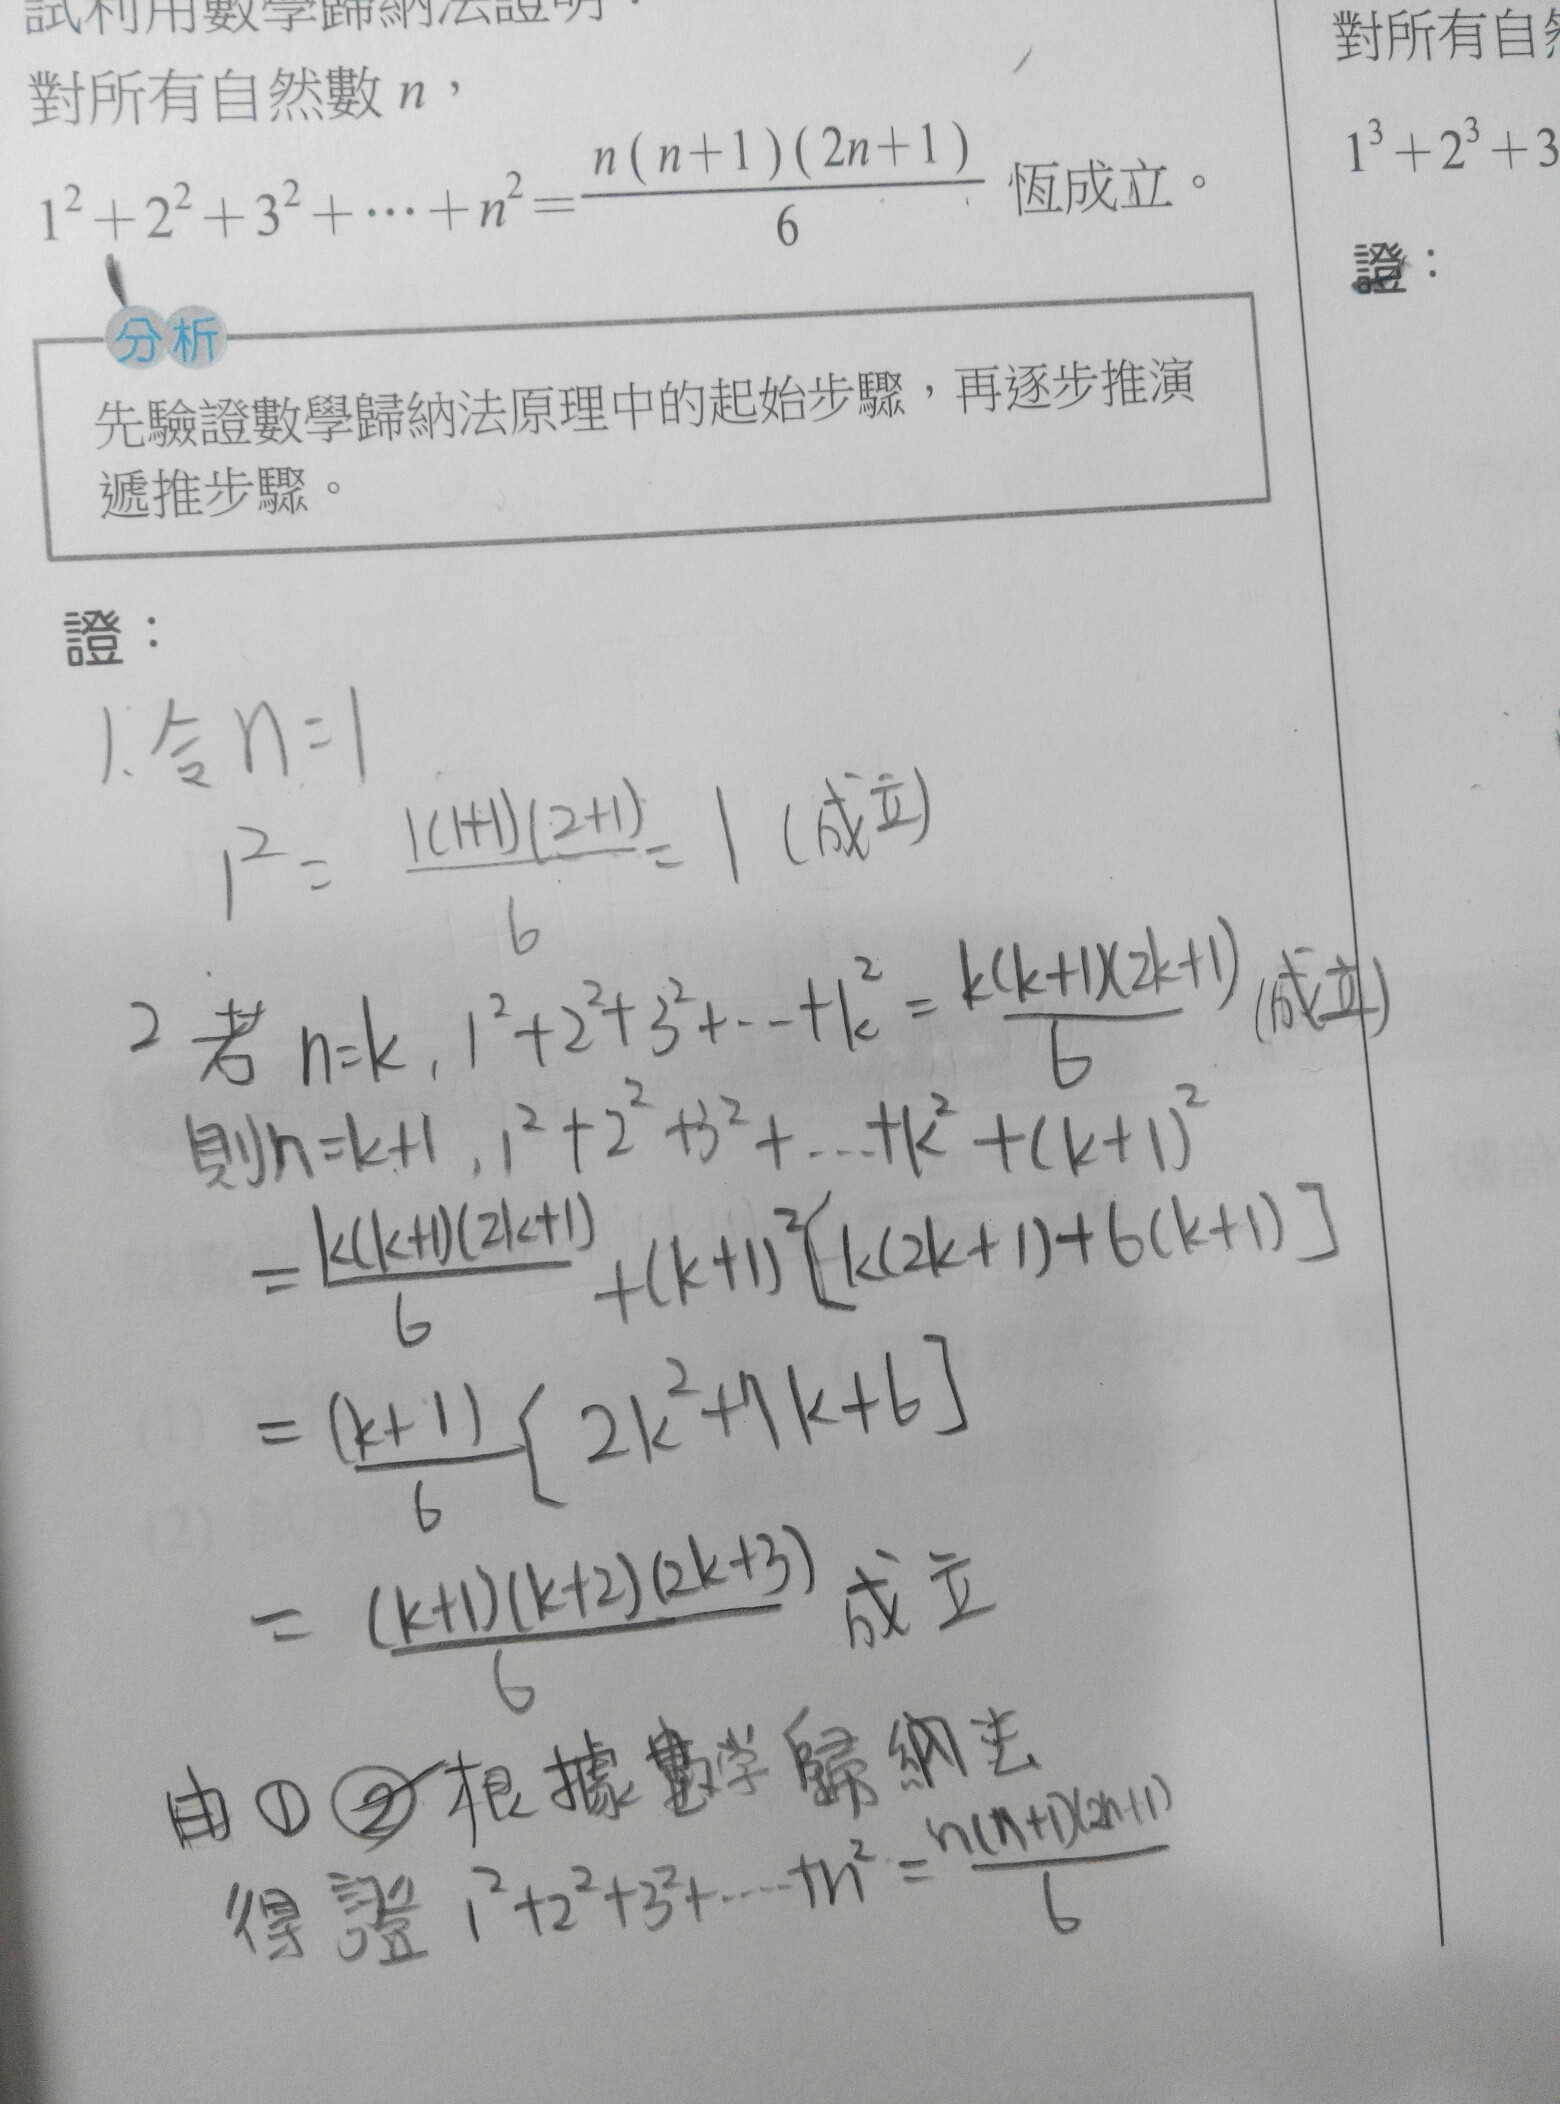 試利用數學歸納法證明：
對所有自然數 n，
1²+2²+3²+⋯+n²=n(n+1)(2n+1)/6 恆成立。
分析
先驗證數學歸納法原理中的起始步驟，再逐步推演
遞推步驟。
證：
1.令n=1
1²=1(1+1)(2+1)/6=1（成立）
2 若n=k，1²+2²+3²+⋯+k²=k(k+1)(2k+1)/6（成立）
則n=k+1，1²+2²+3²+⋯+k²+(k+1)²
=k(k+1)(2k+1)/6+(k+1)²[k(2k+1)+6(k+1)]
=(k+1)/6[2k²+7k+6]
=(k+1)(k+2)(2k+3)/6 成立
由①②根據數学歸納法
得證 1²+2²+3²+⋯+n²=n(n+1)(2n+1)/6
對所有自
1³+2³+3
證：